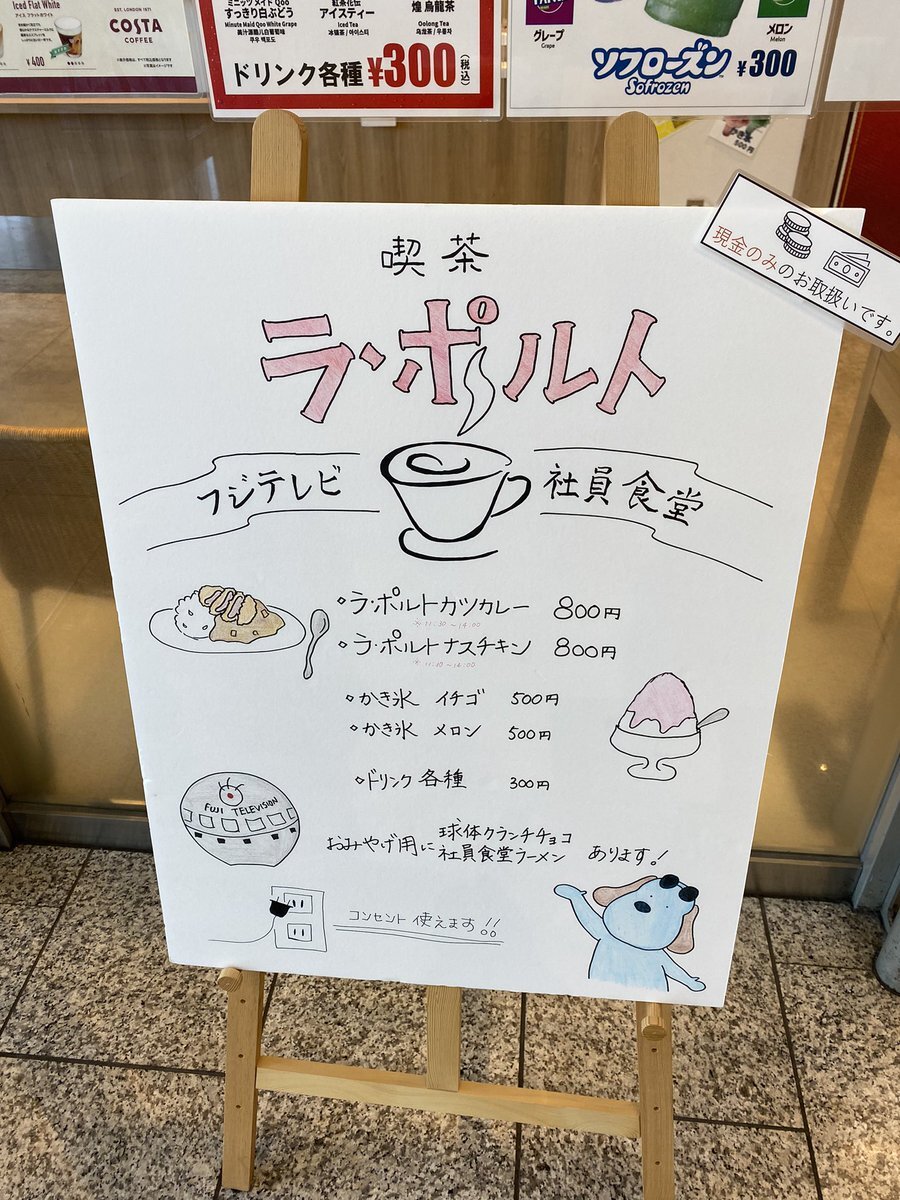 Iced Flat White
アイス フラットホワイト
¥400
EST. LONDON 1971
COSTA
COFFEE
ミニッツ メイド Qoo
すっきり白ぶどう
Minute Maid Qoo White Grape
紅茶花伝
アイスティー
Iced Tea
冰镇茶 / 아이스티
煌 烏龍茶
Oolong Tea
乌龙茶 / 우롱차
ドリンク各種 ¥300 (税込)
グレープ
Grape
メロン
Melon
ソフローズン ¥300
Sofrozen
かき氷
500円
現金のみのお取扱いです。
喫茶
ラ・ポルト
フジテレビ 社員食堂
◇ラ・ポルトカツカレー 800円
※11:30〜14:00
◇ラ・ポルトナスチキン 800円
※11:30〜14:00
◇かき氷 イチゴ 500円
◇かき氷 メロン 500円
◇ドリンク各種 300円
FUJI TELEVISION
おみやげ用に 球体クランチチョコ
社員食堂ラーメン あります!
コンセント使えます!!